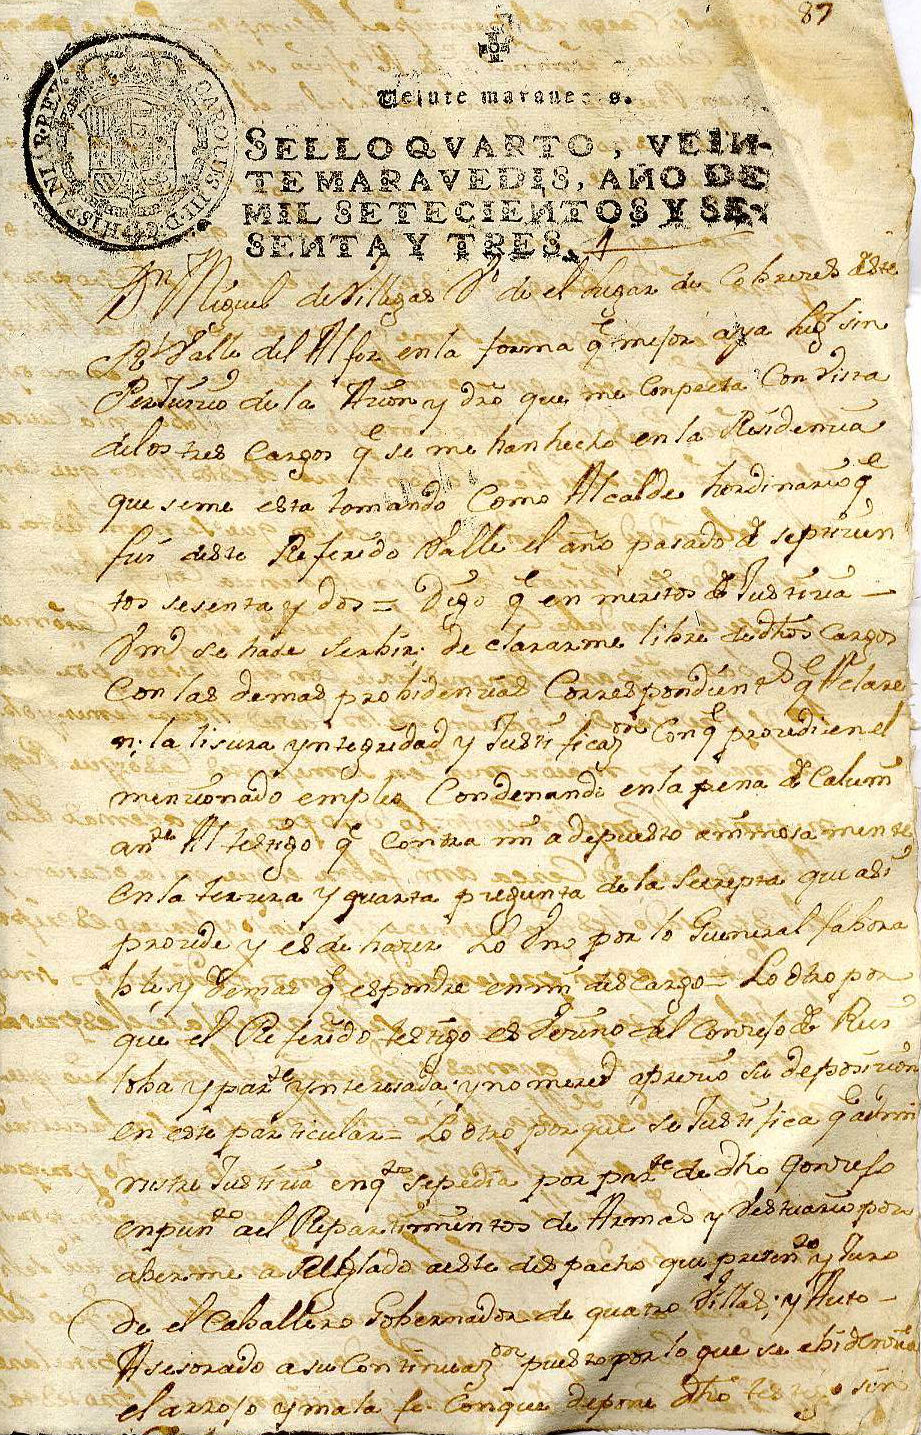 87
CAROLUS III D G HISPANIAR REX
Veinte maravedis.
SELLO QVARTO, VEIN-
TE MARAVEDIS, AÑO DE
MIL SETECIENTOS Y SE-
SENTA Y TRES.
Dn Miguel de Villegas Vº de el lugar de Cobreces deste
Rl Valle del Alfoz en la forma q mejor aya lugr sin
Perjuicio de la Acion y dro que me conpeta Con vista
delos tres Cargos q se me han hecho en la Residencia
que seme esta tomando Como Alcalde hordinario q
fui deste Referido Valle el año pasado de setecien
tos sesenta y dos = Digo q en meritos de Justicia
Vmd se hade serbir de clararme libre de dhos Cargos
Con las demas probidencias Correspondientes q Aclare
n; la lisura yntegridad y Justificazon Con q procedi en el
mencionado empleo Condenando en la pena de Calum
ante Al testigo q contra mi a depuesto animosamente
en la tercera y quarta pregunta de la Secreta que asi
procede y es de hacer Lo Uno por lo General faborа
ble y demas q espondre en mi descargo = Lo otro por
que el Referido testigo es Vecino del Concejo de Ruis
loba y parte ynteresada; y no mereze aprecio su deposicion
en este particular = Lo otro por que se Justifica q admi
nistre Justicia en qto se pedia por parte de dho Concejo
en punto ael Repartimientos de Armas y Vestuario por
aberme a Reglado a este despacho que presento y Juro
de el Caballero Gobernador de quatro Villas; y Auto
Asesorado a su Continuazon puesto por lo que se ebidencia
el arrojo y mala fe Conque depone dho testigo sin